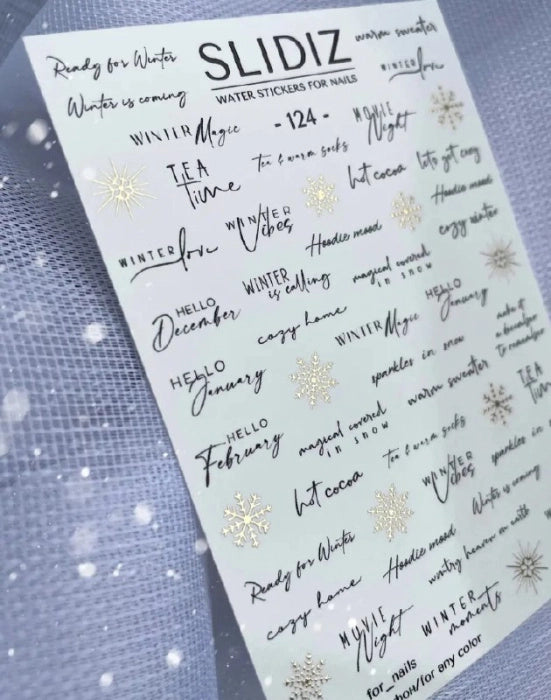 Ready for Winter
SLIDIZ
warm sweater
Winter is coming
WATER STICKERS FOR NAILS
WINTER love
WINTER Magic
- 124 -
MOVIE
Night
TEA
Time
Tea & warm socks
hot cocoa
let's get cozy
Hoodie mood
WINTER love
WINTER
Vibes
Hoodie mood
cozy winter
HELLO
December
WINTER
is calling
magical covered
in snow
HELLO
January
cozy home
WINTER Magic
make it
a december
to remember
HELLO
January
sparkles in snow
warm sweater
TEA
Time
HELLO
February
magical covered
in snow
Tea & warm socks
WINTER
Vibes
sparkles in snow
hot cocoa
Winter is coming
Ready for Winter
Hoodie mood
wintry heaven on earth
cozy home
MOVIE
Night
WINTER
moments
for_nails
фон/for any color